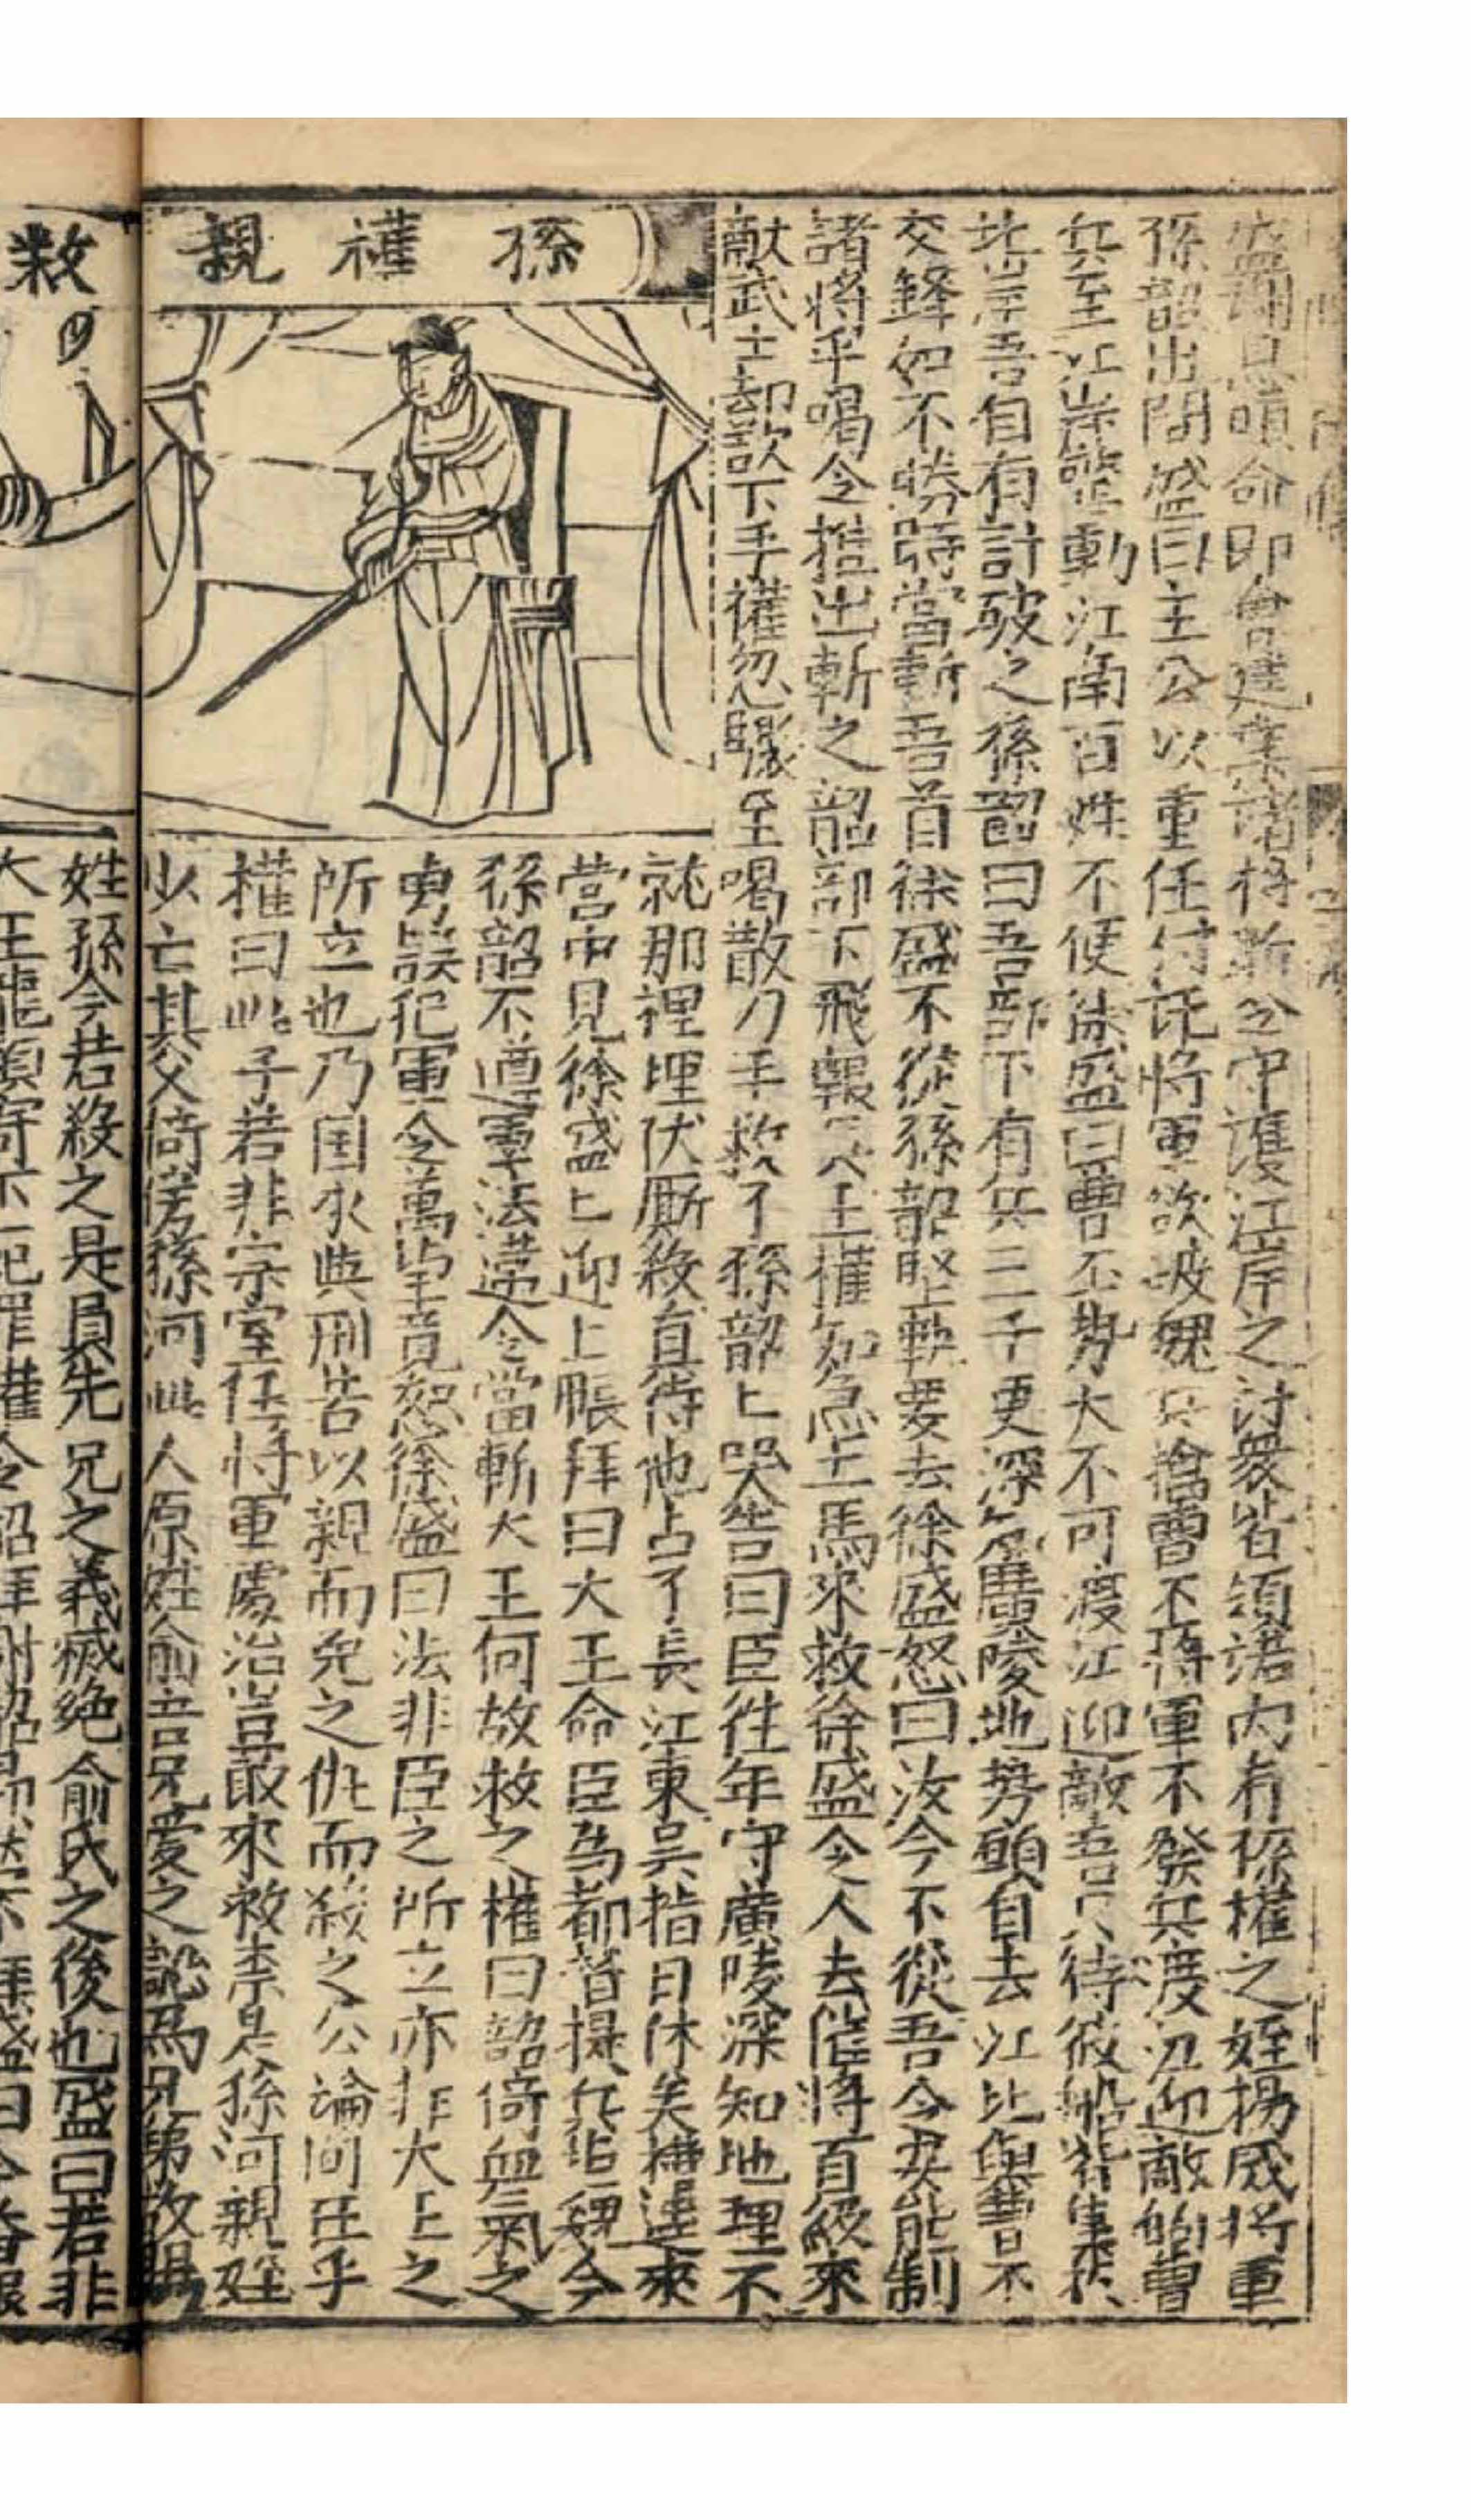 孫權親
救
盛謝恩領命即會建業諸將分守護江岸之計衆皆領諾内有孫權之姪揚威將軍
孫韶出問盛曰主公以重任付託將軍欲破魏兵擒曹丕將軍不發兵渡江迎敵的曹
兵至江岸驚動江南百姓不便徐盛曰曹丕勢大不可渡江迎敵吾只待彼船皆集於
北岸吾自有計破之孫韶曰吾部下有兵三千更深知廣陵地势願自去江北與曹丕
交鋒如不勝時當斬吾首徐盛不從孫韶堅執要去徐盛怒曰汝今不從吾令安能制
諸將乎喝令推出斬之韶部下飛報入吳王權知急上馬來救徐盛令人去催將首級來
献武士却欲下手權忽驟至喝散刀手救了孫韶上哭告曰臣往年守廣陵深知地理不
就那裡埋伏厮殺直待他占了長江東吳指日休矣權逕來
營中見徐盛上迎上帳拜曰大王命臣為都督提兵拒魏今
孫韶不遵軍法違令當斬大王何故救之權曰韶倚血氣之
勇誤犯軍令萬望竟恕徐盛曰法非臣之所立亦非大王之
所立也乃国家典刑若以親而免之仇而殺之公論何在乎
權曰此子若非宗室任將軍處治豈敢來救柰是孫河親姪
少亡其父倚傍孫河此人原姓俞吾兄愛之認為兄弟故賜
姓孫今若殺之是負先兄之義滅絶俞氏之後也盛曰若非